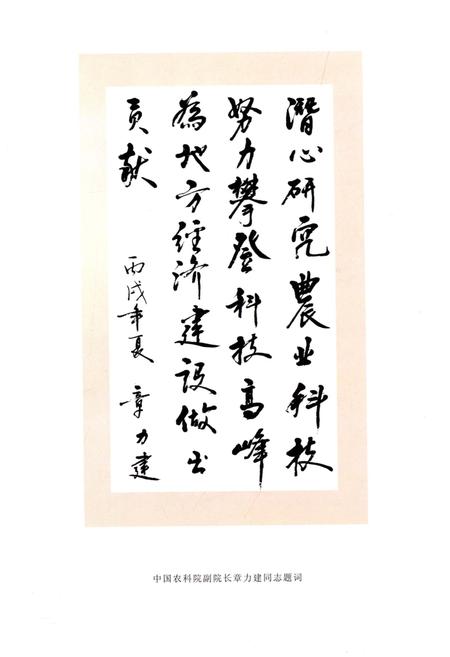 潛心研究農业科技
努力攀登科技高峰
為地方经济建设做出
贡献
丙戌年夏 章力建
中国农科院副院长章力建同志题词